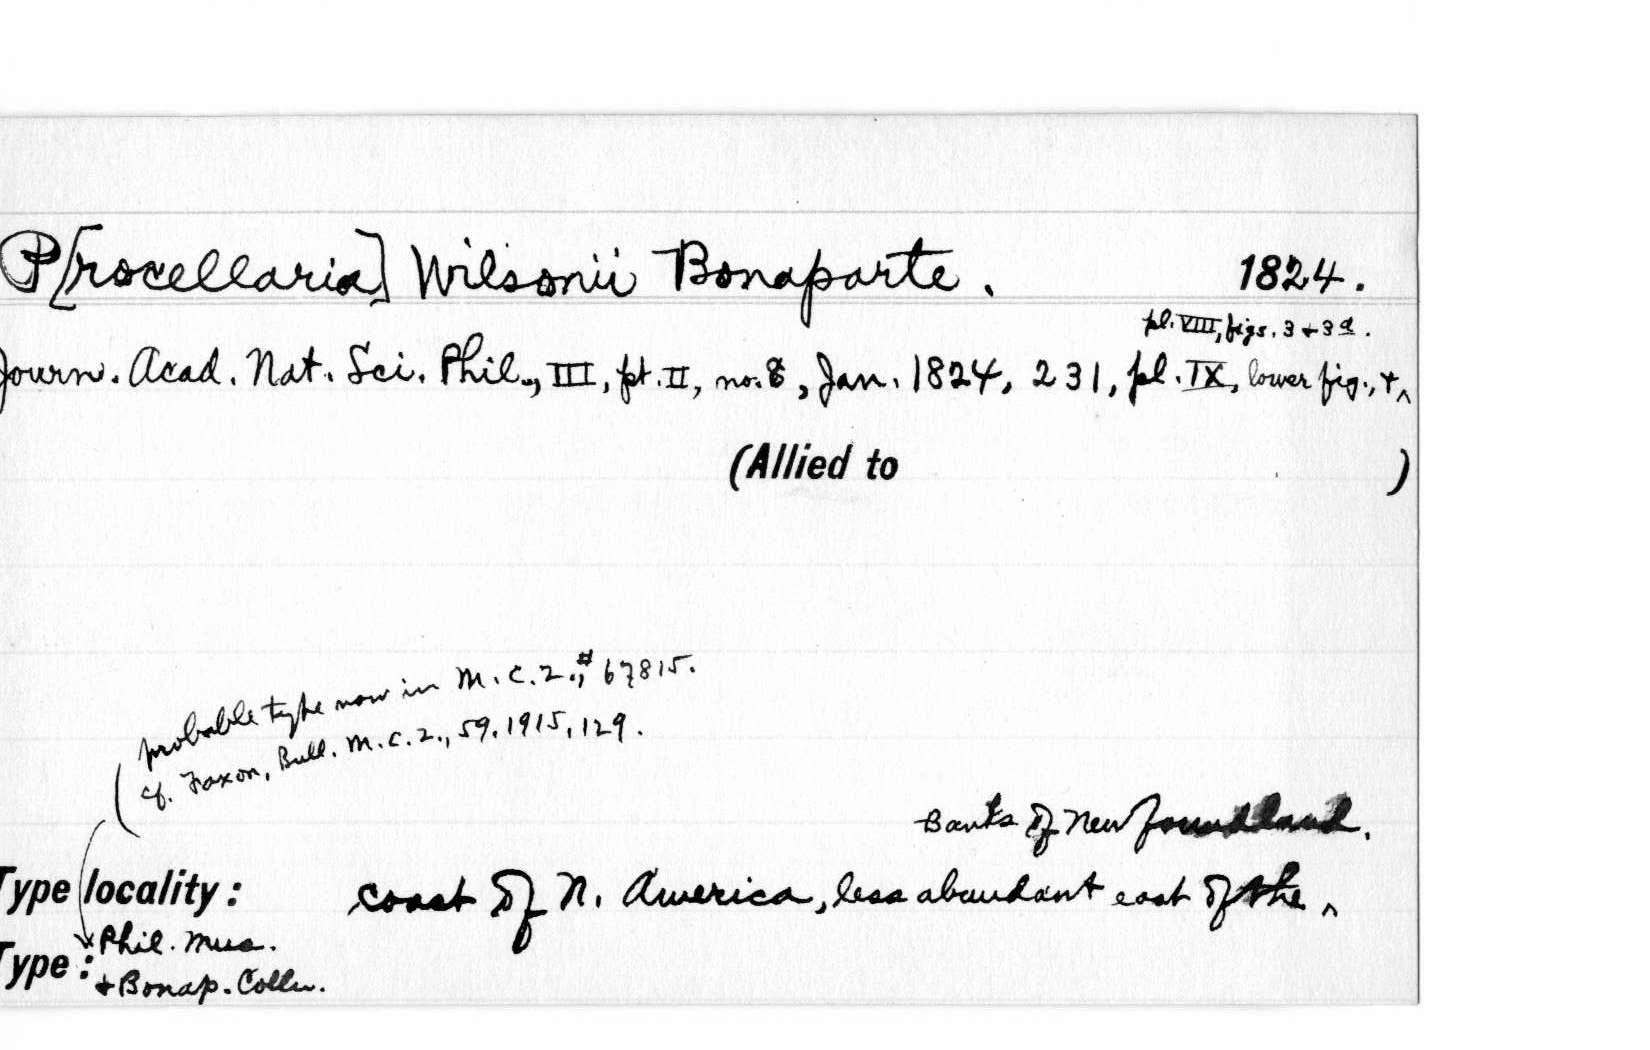 P[rocellaria] Wilsonii Bonaparte. 1824.
pl. VIII, figs. 3 + 3a.
Journ. Acad. Nat. Sci. Phil., III, pt. II, no. 8, Jan. 1824, 231, pl. IX, lower fig., + ^
(Allied to )
probable type now in M.C.Z., # 67815.
cf. Faxon, Bull. M.C.Z., 59. 1915, 129.
Banks of Newfoundland.
Type locality: coast of N. America, less abundant east of the ^
Type: Phil. Mus.
+ Bonap. Colln.